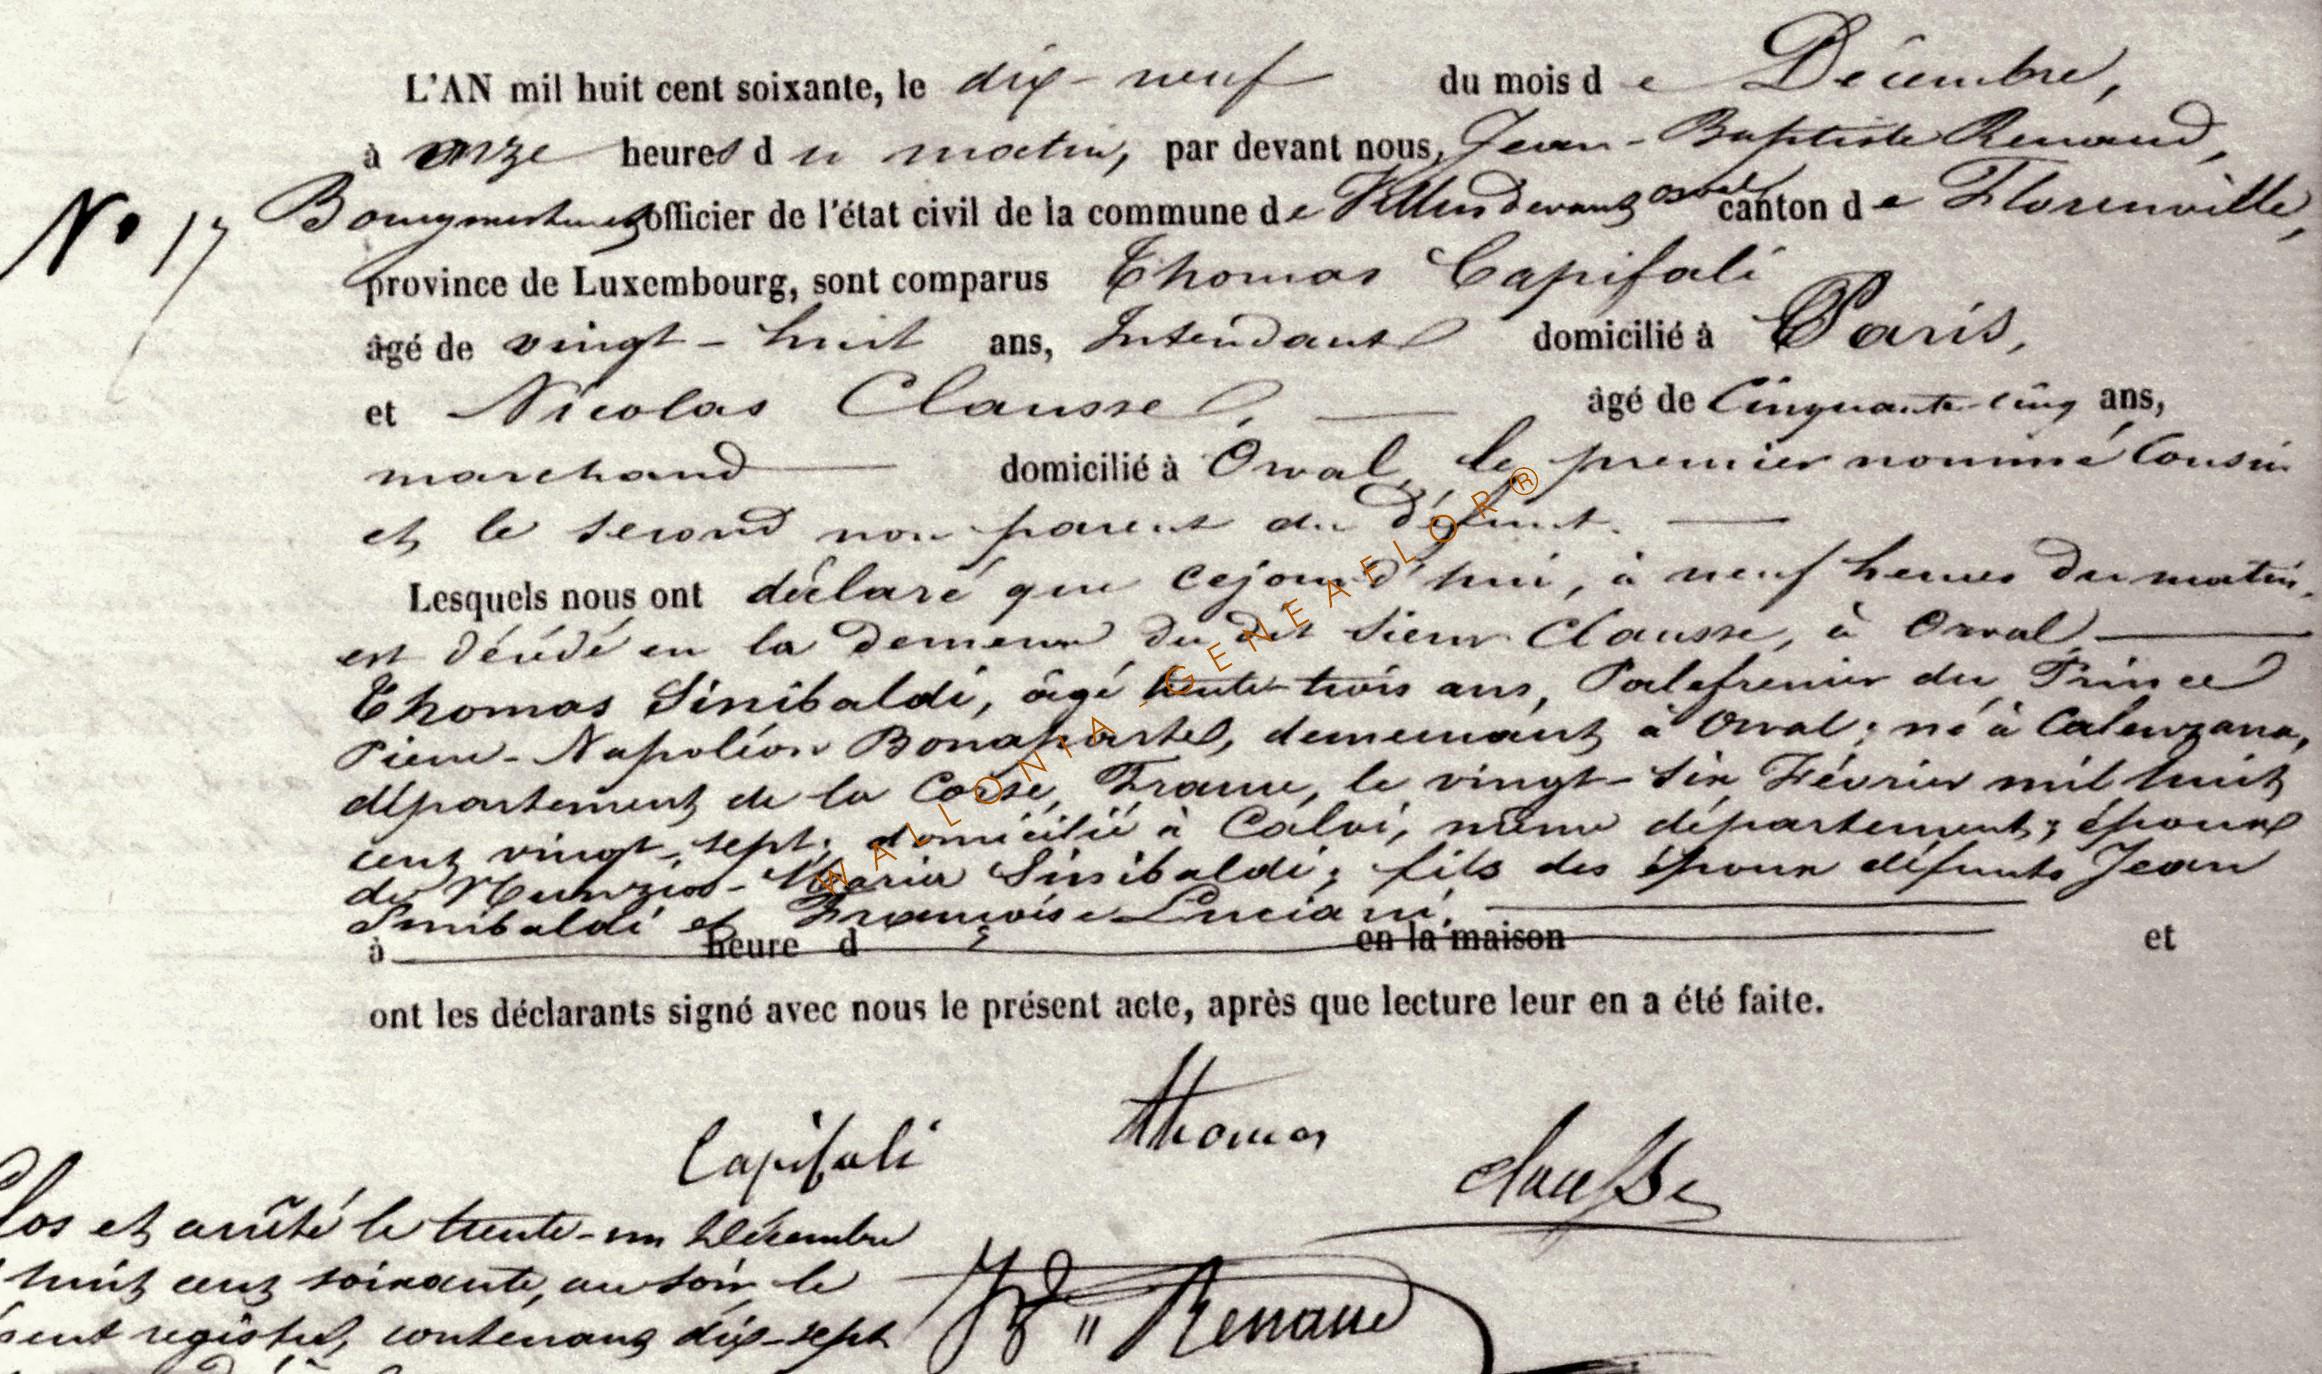 L'AN mil huit cent soixante, le dix-neuf du mois de Décembre,
à onze heures du matin, par devant nous, Jean-Baptiste Renaud,
N° 17 Bourgmestre et officier de l'état civil de la commune de Villers devant orval canton de Florenville,
province de Luxembourg, sont comparus Thomas Capifali
âgé de vingt-huit ans, Intendant domicilié à Paris,
et Nicolas Clausse, âgé de Cinquante-cinq ans,
marchand domicilié à Orval, le premier nommé Cousin
et le second non parent du défunt.
Lesquels nous ont déclaré que cejourd'hui, à neuf heures du matin,
est décédé en la demeure du dit Sieur Clausse, à Orval
Thomas Sinibaldi, âgé trente-trois ans, Palefrenier du Prince
Pierre-Napoléon Bonaparte, demeurant à Orval; né à Calenzana,
département de la Corse, France, le vingt-six Février mil huit
cent vingt-sept; domicilié à Calvi, même département; époux
de Nunzia-Maria Sinibaldi; fils des époux défunts Jean
Sinibaldi et Françoise Luciani.
à heure d en la maison et
ont les déclarants signé avec nous le présent acte, après que lecture leur en a été faite.
Capifali thomas
clausse
Clos et arrêté le trente-un Décembre
huit cent soixante, au soir, le
sent registre, contenant dix-sept
JB Renaud
WALLONIA-GENEAFLOR®